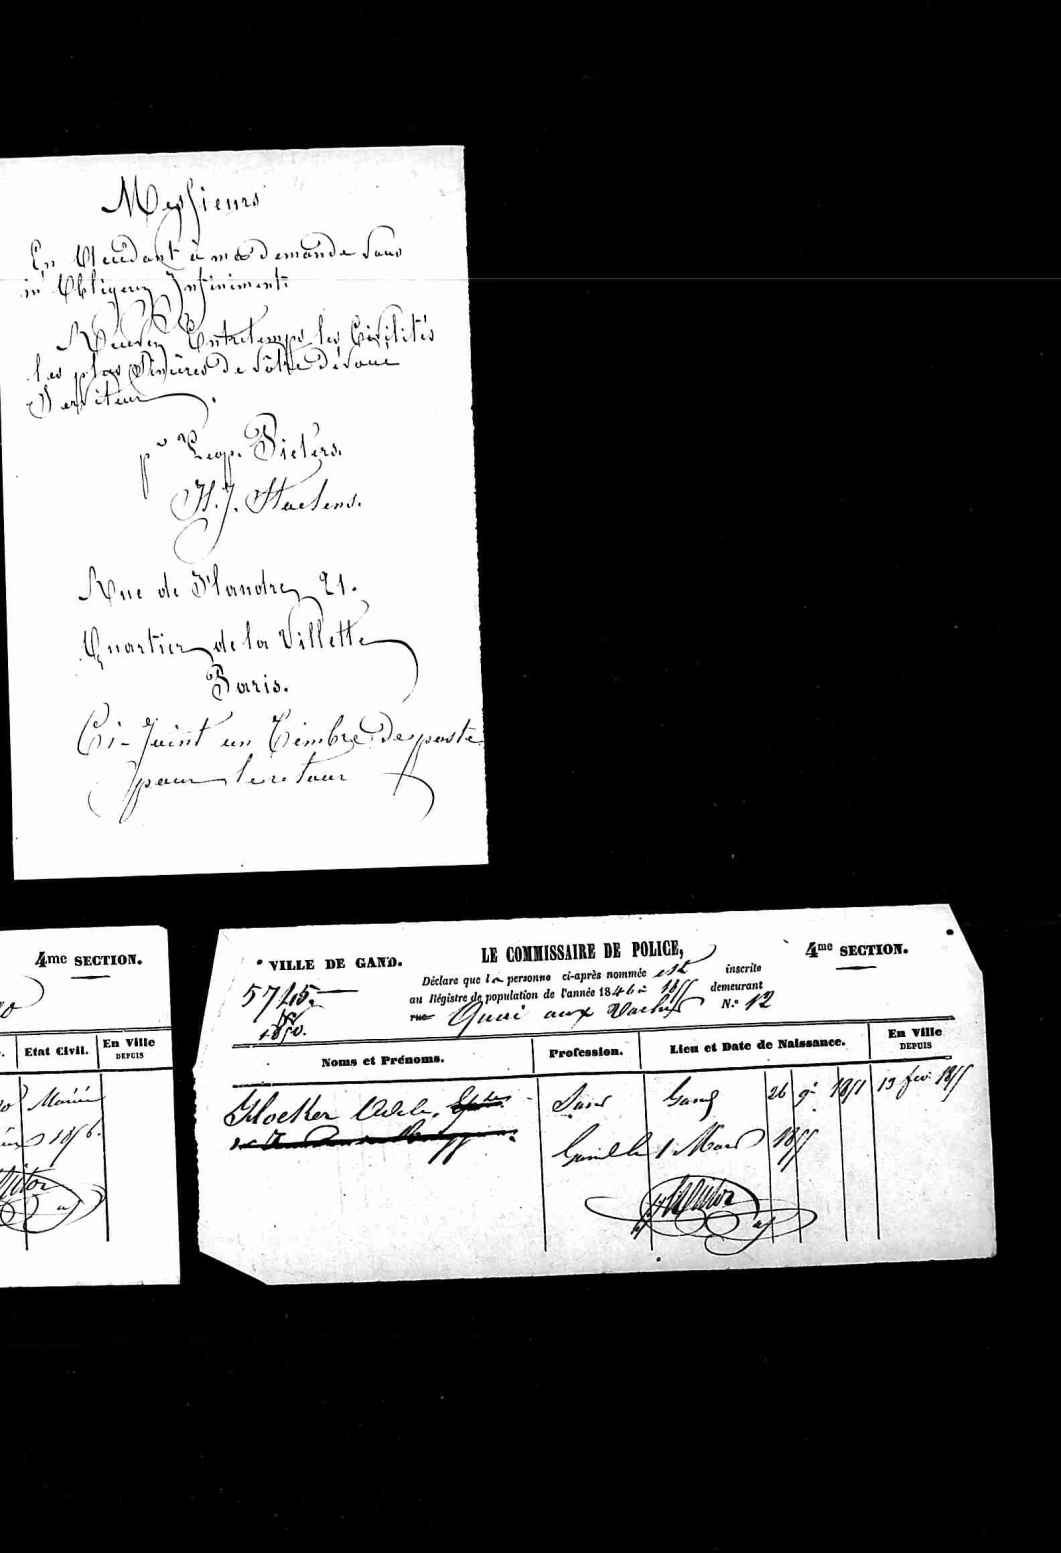 Messieurs
En Attendant à ma demande Vous
m'Obligerez Infiniment.
Recevez Entretemps les Civilités
les plus Sincères de Vôtre dévoué
Serviteur.
pr Leop. Pieters.
H. J. Staelens.
Rue de Flandre, 21.
Quartier de la Villette
Paris.
Ci-Joint un Timbre de poste
pour le retour
4me SECTION.
Etat Civil. En Ville DEPUIS
Marié
1856.
VILLE DE GAND. LE COMMISSAIRE DE POLICE, 4me SECTION.
5745
1850.
Déclare que la personne ci-après nommée est inscrite
au Régistre de population de l'année 1846 = 1855 demeurant
rue Quai aux Vaches N.° 12
Noms et Prénoms. Profession. Lieu et Date de Naissance. En Ville DEPUIS
Adele, Gand 26 9e 13 fev. 1855
1 Mars 1855